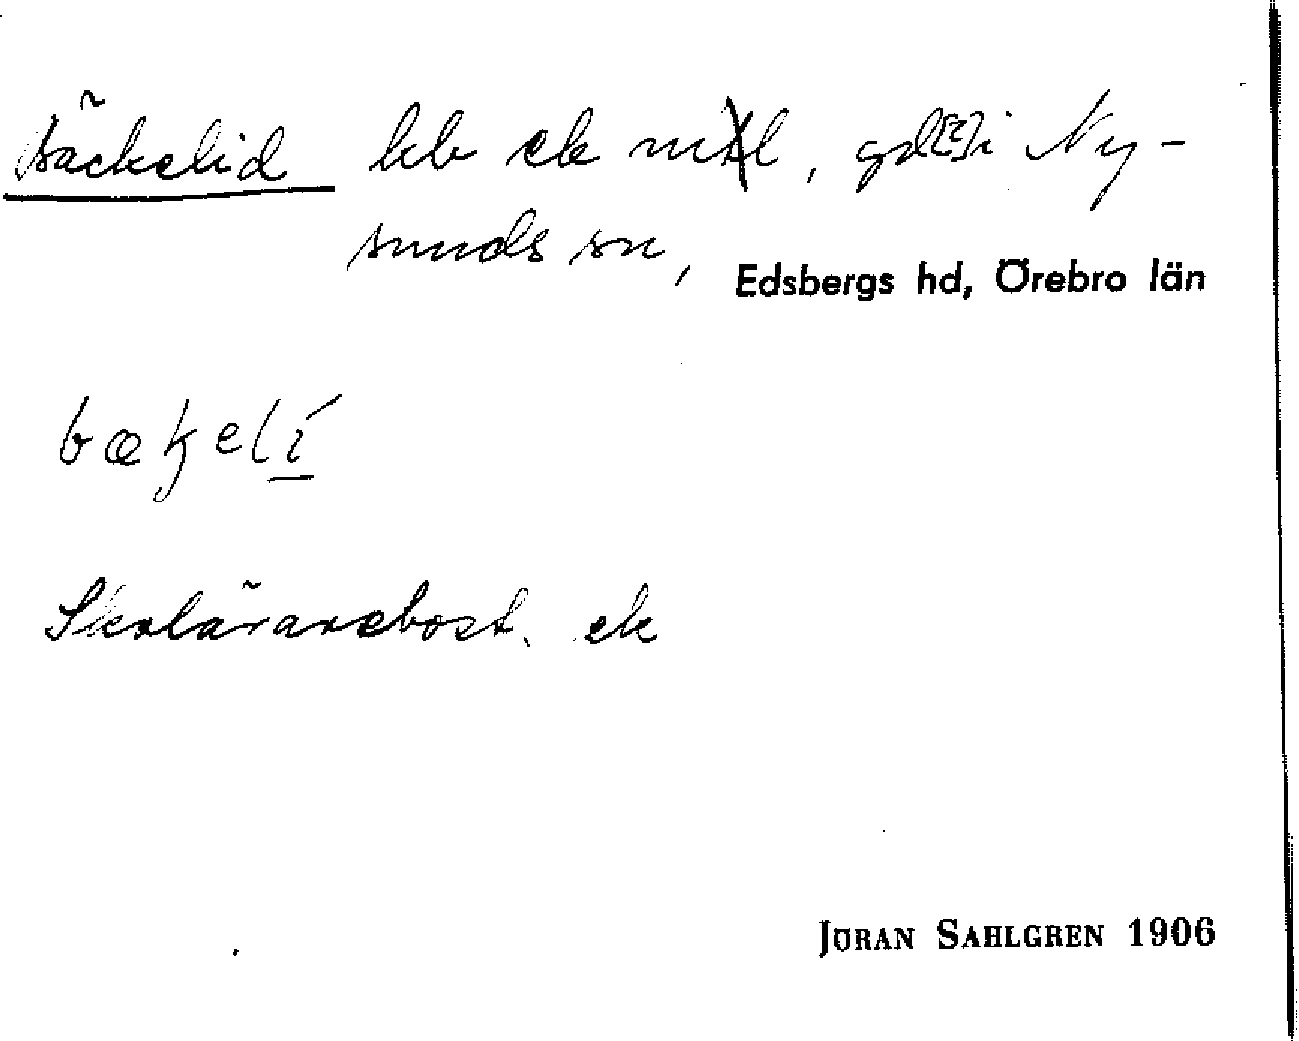 Bäckelid hb ek mtl, gd[?] i Ny-
sunds sn, Edsbergs hd, Örebro län
bæꞣelí
Skollärarebost. ek
JÖRAN SAHLGREN 1906